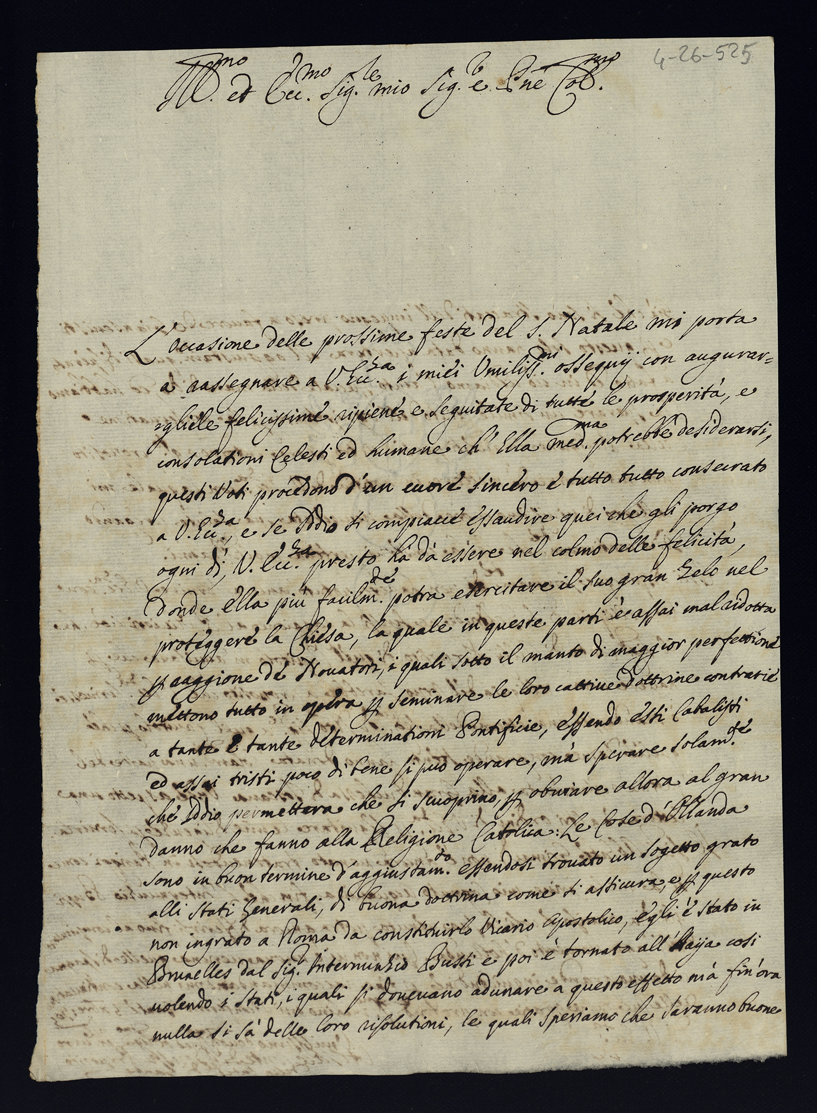 4-26-525
Ill.mo ed Ecc.mo Sig.re mio Sig.r e Pne Col.mo
L'occasione delle prossime feste del S. Natale mi porta
a rassegnare a V. Ecc.za i miei Umiliss.mi ossequij con augurar=
gliele felicissime ripiene e seguitate di tutte le prosperità, e
consolationi Celesti ed humane ch' Ella med.ma potrebbe desiderarsi,
questi Voti procedono d'un cuore sincero e tutto tutto consecrato
a V. Ecc.za, e se Iddio si compiace essaudire quei che gli porgo
ogni dì, V. Ecc.za presto hà da essere nel colmo delle felicità,
donde ella più facilm.te potra esercitare il suo gran zelo nel
proteggere la Chiesa, la quale in queste parti è assai mal ridotta
p raggione de Novatori, i quali sotto il manto di maggior perfettione
mettono tutto in opera p seminare le loro cattive dottrine contrarie
a tante e tante determinationi Pontificie, essendo esti Cabalisti
ed assai tristi poco di bene si può operare, mà sperare solam.te
che Iddio permettera che si scuoprino p obviare allora al gran
danno che fanno alla Religione Catolica: Le Cose d'Ollanda
sono in buon termine d'aggiustam.to essendosi trovato un sogetto grato
alli Stati Generali, di buona doctrina come si assicura, e p questo
non ingrato a Roma da constituirlo Vicario Apostolico, egli è stato in
Bruelles dal Sig.r Internunzio Bussi e poi è tornato all'Haija cosi
volendo i Stati, i quali si dovevano adunare a questo effetto mà fin'ora
nulla si sà delle loro risolutioni, le quali speriamo che saranno buone